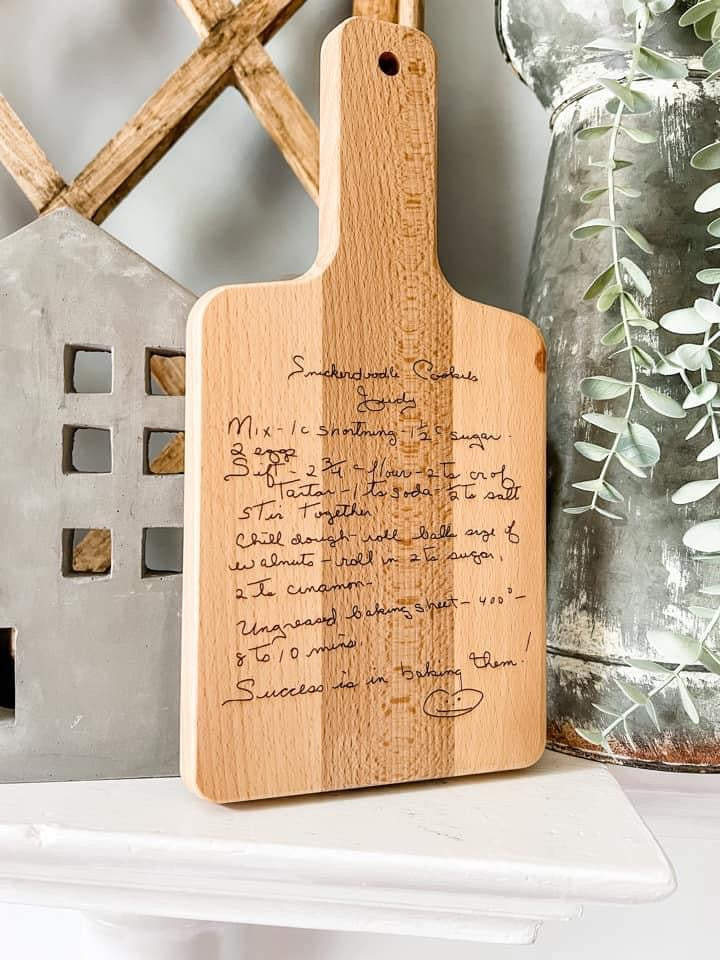 Snickerdoodle Cookies
Judy
Mix - 1c shortning - 1 1/2 c sugar.
2 eggs
Sift - 2 3/4 c flour - 2 ts cr of
Tartar - 1 ts soda = 1/2 ts salt
STir Together
Chill dough - roll balls size of
walnuts - roll in 2 Ts sugar,
2 Ts cinamon -
Ungreased baking sheet - 400° -
8 To 10 mins.
Success is in baking them!